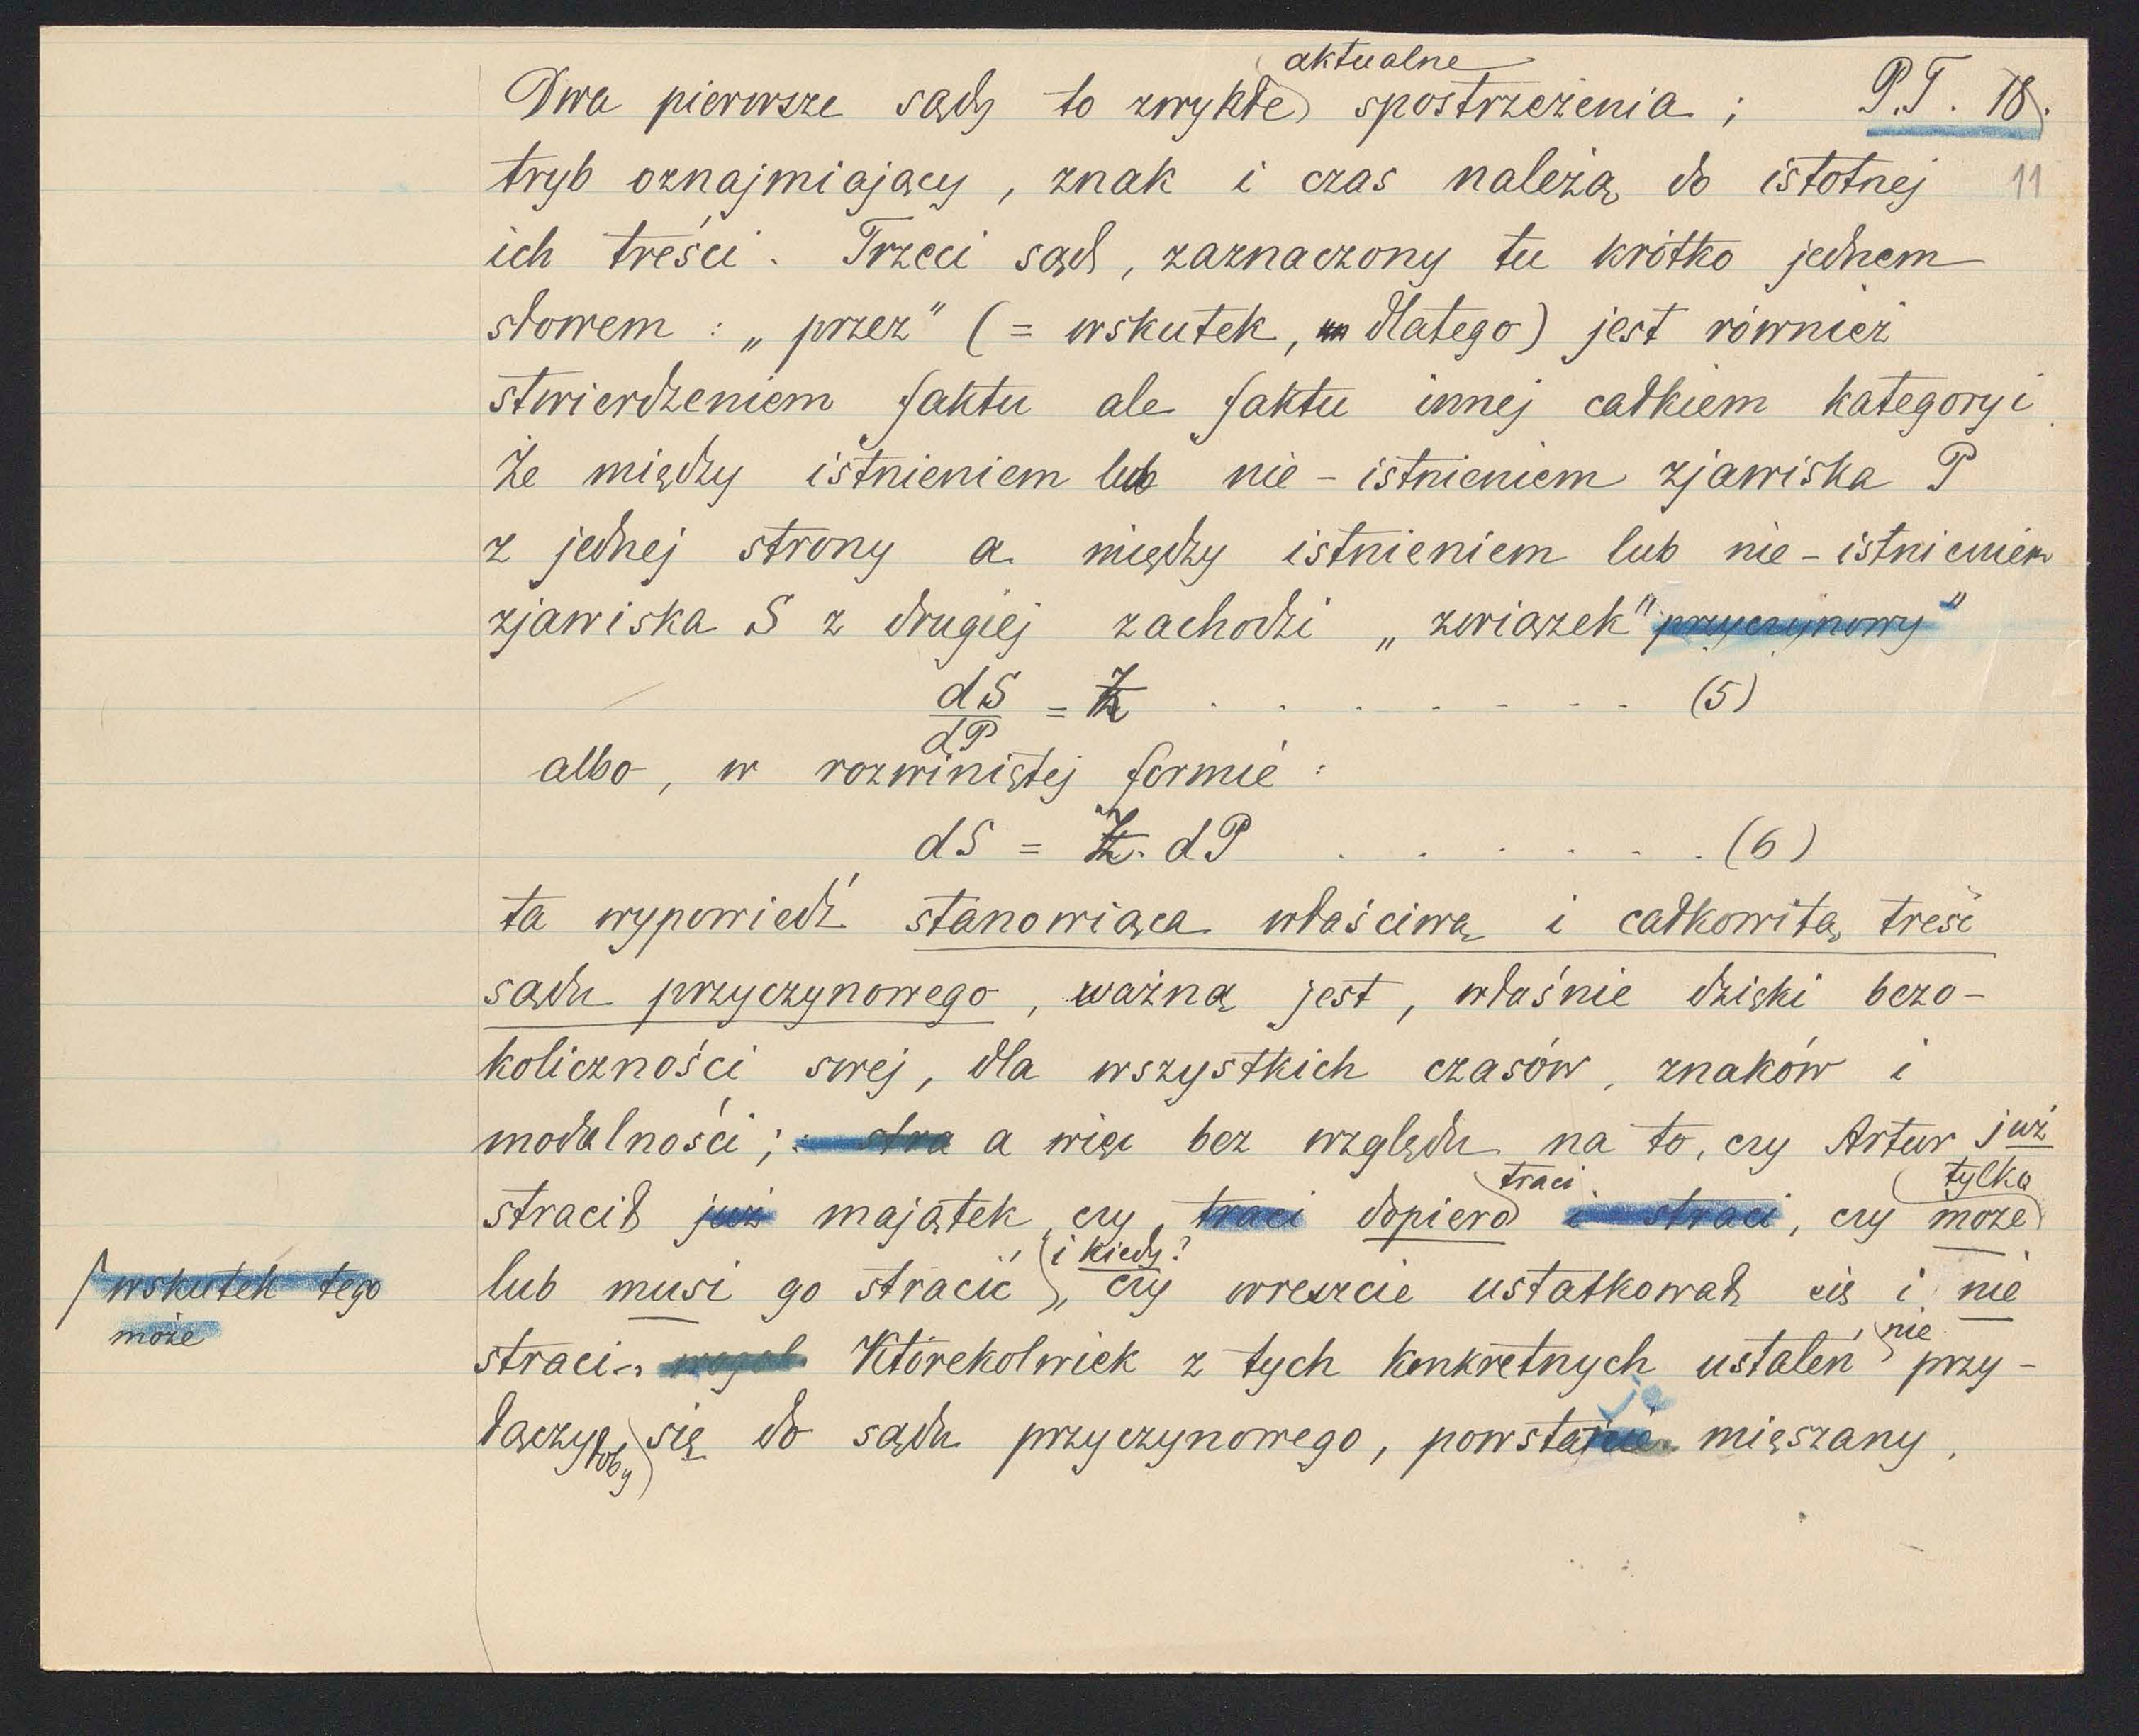 aktualne
Dwa pierwsze sądy to zwykłe spostrzeżenia ; P.T. 18.
tryb oznajmiający , znak i czas należą do istotnej 11
ich treści . Trzeci sąd , zaznaczony tu krótko jednem
słowem : „ przez " ( = wskutek , dlatego ) jest również
stwierdzeniem faktu ale faktu innej całkiem kategoryi .
Że między istnieniem lub nie - istnieniem zjawiska P
z jednej strony a między istnieniem lub nie - istnieniem
zjawiska S z drugiej zachodzi „ związek " przyczynowy "
dS/dP = Ż . . . . . . . . (5)
albo , w rozwiniętej formie :
dS = Ż . dP . . . . . . . (6)
ta wypowiedź stanowiąca właściwą i całkowitą treść
sądu przyczynowego , ważną jest , właśnie dzięki bezo-
koliczności swej , dla wszystkich czasów , znaków i
modalności ; stra a więc bez względu na to , czy Artur już
traci tylko
stracił już majątek , czy , traci dopiero i straci , czy może
i kiedy ?
wskutek tego lub musi go stracić , czy wreszcie ustatkował się i nie
może
nie
straci . wogól Którekolwiek z tych konkretnych ustaleń , przy-
je
łączyłoby się do sądu przyczynowego , powstaje mięszany .